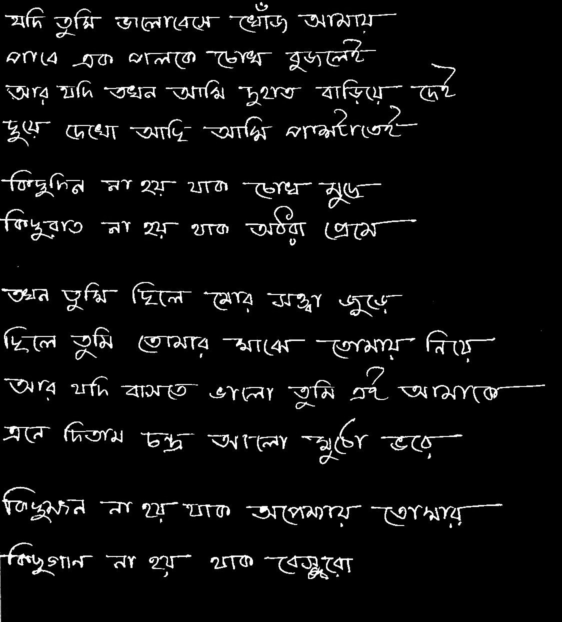 যদি তুমি ভালোবেসে খোঁজ আমায়
পাবে এক পলকে চোখ বুজলেই
আর যদি তখন আমি দুহাত বাড়িয়ে দেই
ছুয়ে দেখো আছি আমি পাশটাতেই
কিছুদিন না হয় থাক চোখ মুদে
কিছুরাত না হয় থাক অঠরা প্রেমে
তখন তুমি ছিলে মোর সত্ত্বা জুড়ে
ছিলে তুমি তোমার মাঝে তোমায় নিয়ে
আর যদি বাসতে ভালো তুমি এই আমাকে
এনে দিতাম চন্দ্র আলো মুঠো ভরে
কিছুক্ষন না হয় থাক অপেক্ষায় তোমার
কিছুগান না হয় থাক বেসুরো